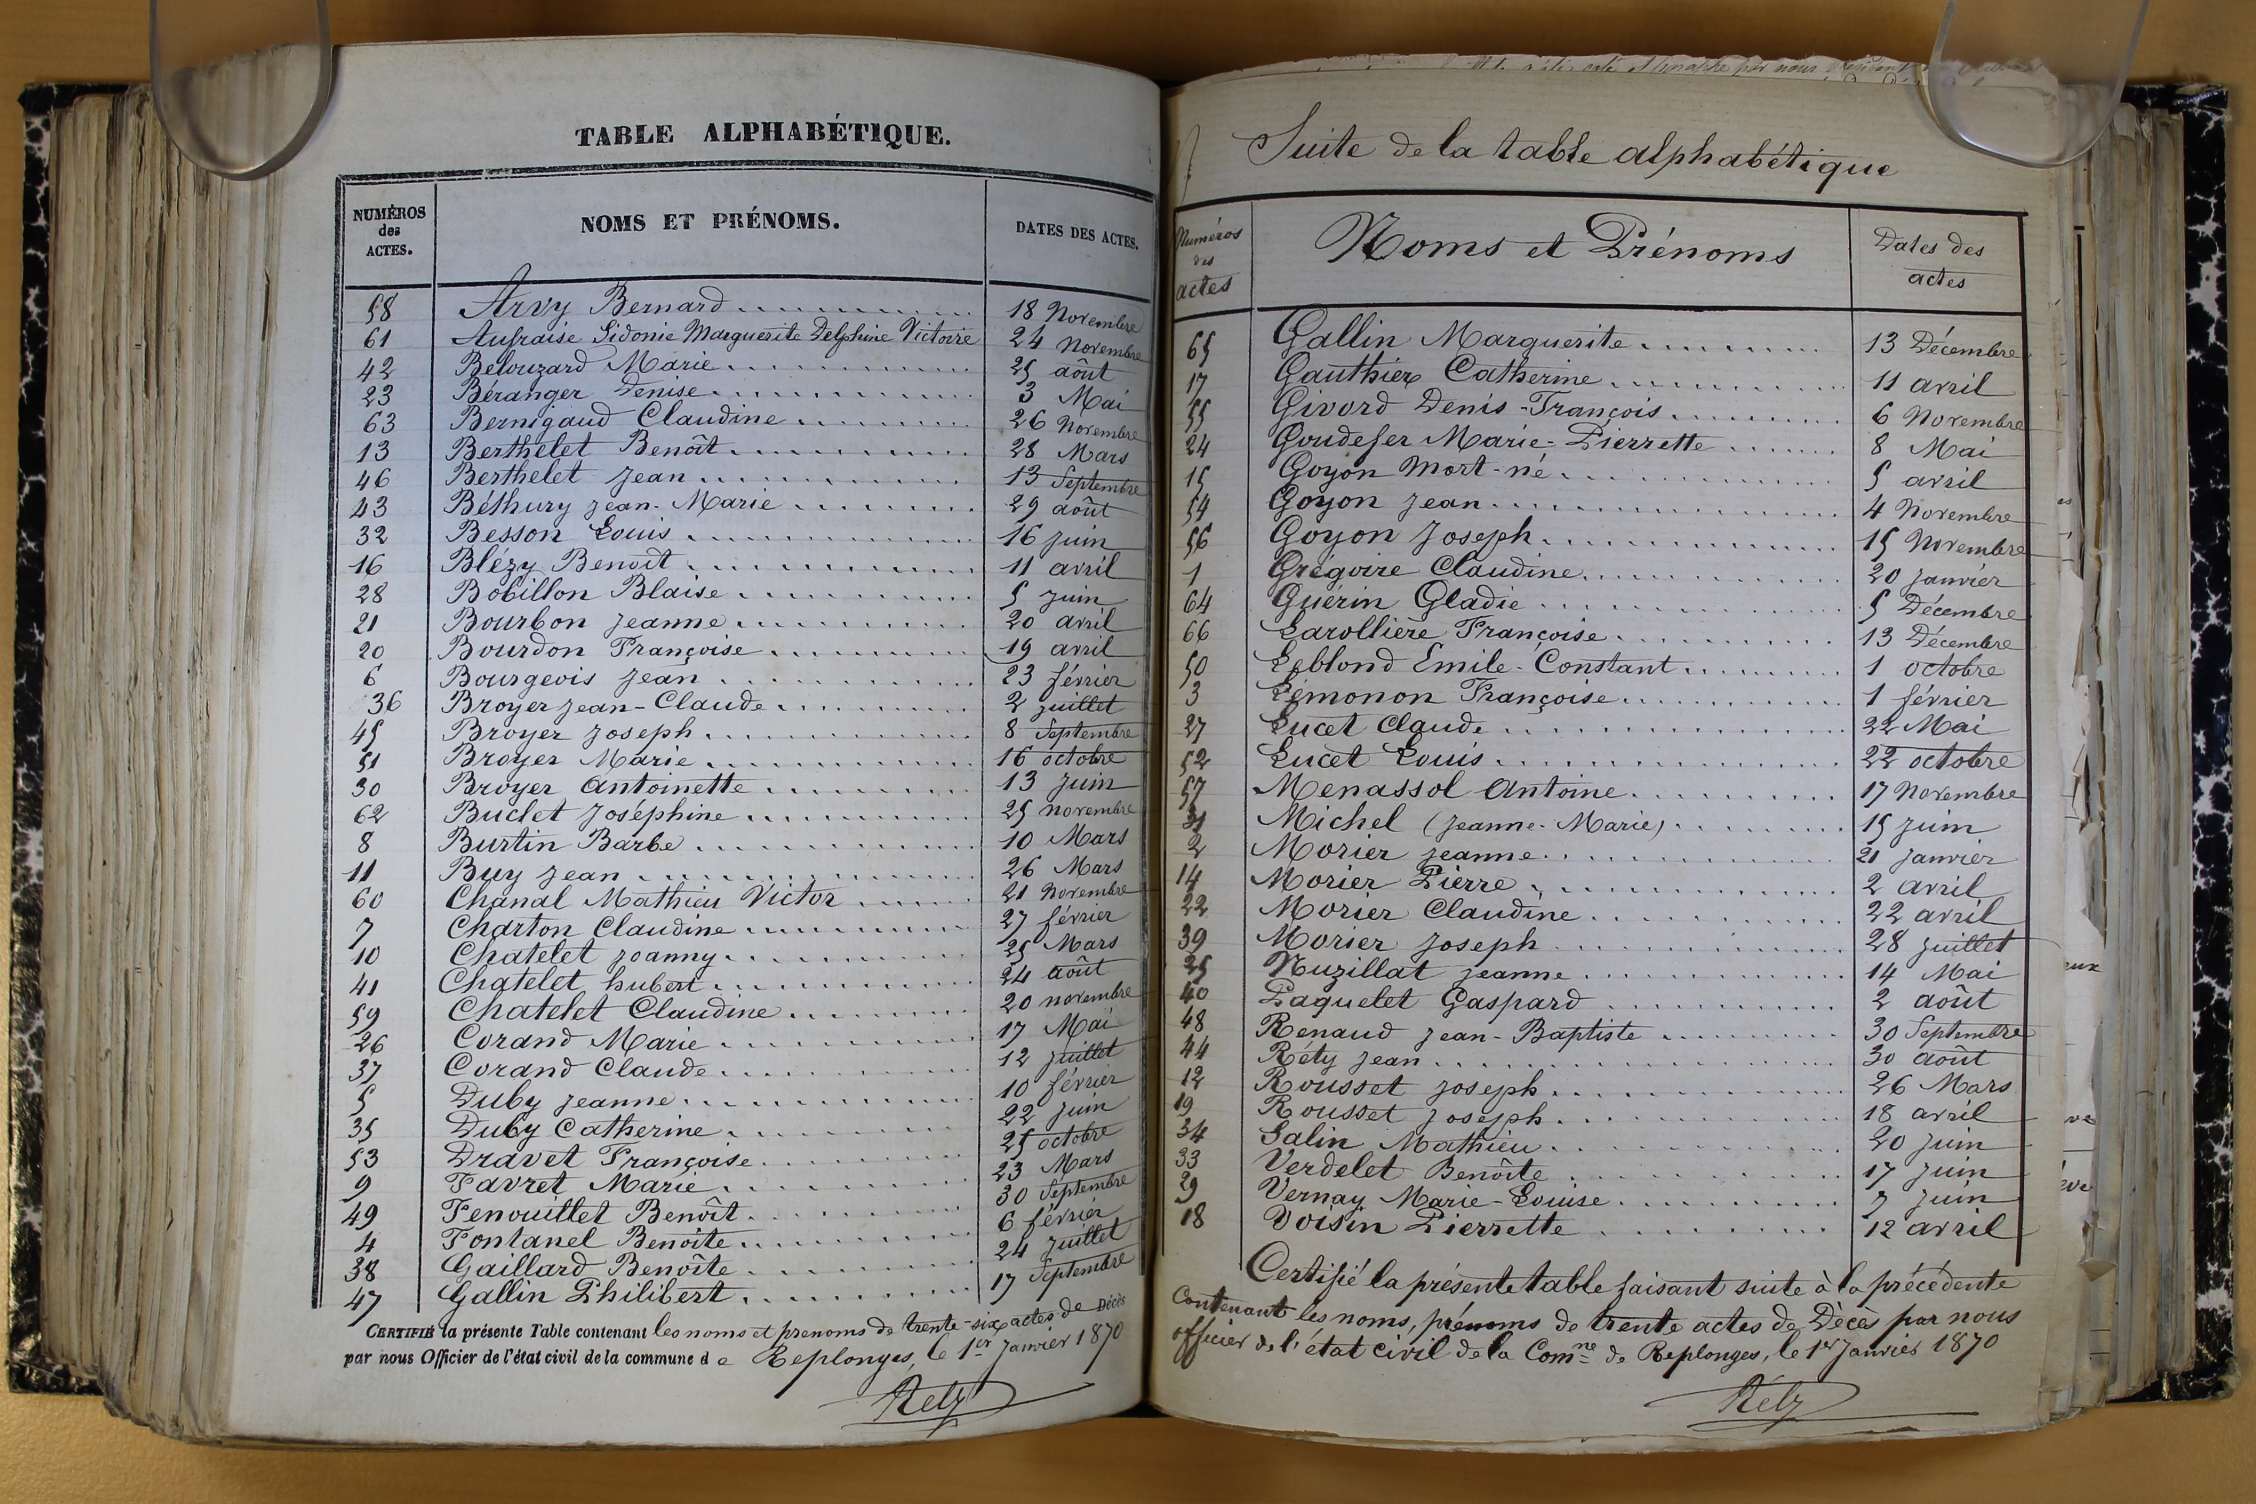 TABLE ALPHABÉTIQUE.
NUMÉROS des ACTES. NOMS ET PRÉNOMS. DATES DES ACTES.
58 Arvy Bernard 18 Novembre
61 Aufraise Sidonie Marguerite Delphine Victoire 24 Novembre
42 Belouzard Marie 25 août
23 Béranger Denise 3 Mai
63 Bernigaud Claudine 26 Novembre
13 Berthelet Benoît 28 Mars
46 Berthelet Jean 13 Septembre
43 Béthury Jean-Marie 29 août
32 Besson Louis 16 juin
16 Blézy Benoît 11 avril
28 Bobillon Blaise 5 juin
21 Bourbon Jeanne 20 avril
20 Bourdon Françoise 19 avril
6 Bourgeois Jean 23 février
36 Broyer Jean-Claude 2 juillet
45 Broyer Joseph 8 Septembre
51 Broyer Marie 16 octobre
30 Broyer Antoinette 13 juin
62 Buclet Joséphine 25 novembre
8 Burtin Barbe 10 Mars
11 Buy Jean 26 Mars
60 Chanal Mathieu Victor 21 Novembre
7 Charton Claudine 27 février
10 Chatelet Joanny 25 Mars
41 Chatelet hubert 24 août
59 Chatelet Claudine 20 novembre
26 Corand Marie 17 Mai
37 Corand Claude 12 juillet
5 Duby Jeanne 10 février
35 Duby Catherine 22 juin
53 Dravet Françoise 25 octobre
9 Favret Marie 23 Mars
49 Fenouillet Benoît 30 Septembre
4 Fontanel Benoite 6 février
38 Gaillard Benoîte 24 juillet
47 Gallin Philibert 17 Septembre
CERTIFIÉ la présente Table contenant les noms et prenoms de trente-six actes de Décès
par nous Officier de l'état civil de la commune de Replonges, le 1er Janvier 1870
Suite de la table alphabétique
Numéros des actes Noms et Prénoms Dates des actes
65 Gallin Marguerite 13 Décembre
17 Gauthier Catherine 11 avril
55 Givord Denis-François 6 Novembre
24 Goudefer Marie-Pierrette 8 Mai
15 Goyon Mort-né 5 avril
54 Goyon Jean 4 Novembre
56 Goyon Joseph 15 Novembre
1 Grégoire Claudine 20 janvier
64 Guérin Gladie 5 Décembre
66 Larollière Françoise 13 Décembre
50 Leblond Emile-Constant 1 octobre
3 Lémonon Françoise 1 février
27 Lucet Claude 22 Mai
52 Lucet Louis 22 octobre
57 Menassol Antoine 17 Novembre
31 Michel (Jeanne-Marie) 15 juin
2 Morier Jeanne 21 janvier
14 Morier Pierre 2 avril
22 Morier Claudine 22 avril
39 Morier Joseph 28 juillet
25 Nuzillat Jeanne 14 Mai
40 Paquelet Gaspard 2 août
48 Renaud Jean-Baptiste 30 Septembre
44 Réty Jean 30 août
12 Rousset Joseph 26 Mars
19 Rousset Joseph 18 avril
34 Salin Mathieu 20 juin
33 Verdelet Benôite 17 juin
29 Vernay Marie-Louise 7 juin
18 Voisin Pierrette 12 avril
Certifié la présente table faisant suite à la précédente
Contenant les noms, prénoms de trente actes de Décès par nous
officier de l'état civil de la Comne de Replonges, le 1er Janvier 1870